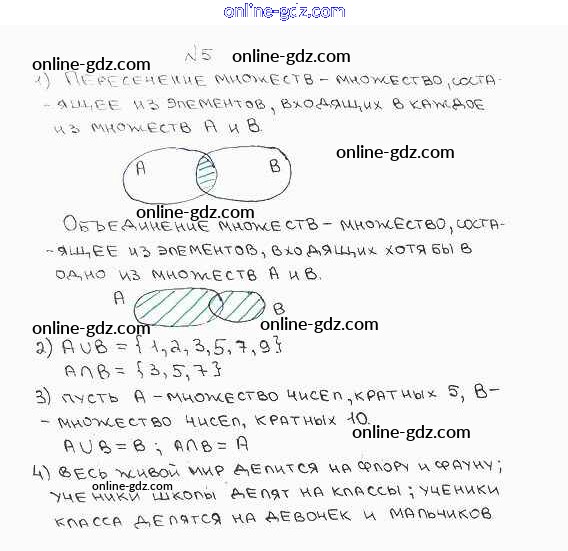 www.online-gdz.com
online-gdz.com
№5 online-gdz.com
1) Пересечение множеств – множество, соста-
-ящее из элементов, входящих в каждое
из множеств A и B.
online-gdz.com
A B
online-gdz.com
Объединение множеств – множество, соста-
-ящее из элементов, входящих хотя бы в
одно из множеств A и B.
A B
online-gdz.com online-gdz.com
2) A∪B = {1,2,3,5,7,9}
A∩B = {3,5,7}
3) пусть A – множество чисел, кратных 5, B –
– множество чисел, кратных 10.
A∪B = B ; A∩B = A
online-gdz.com
4) весь живой мир делится на флору и фауну;
online-gdz.com
ученики школы делят на классы; ученики
класса делятся на девочек и мальчиков
online-gdz.com